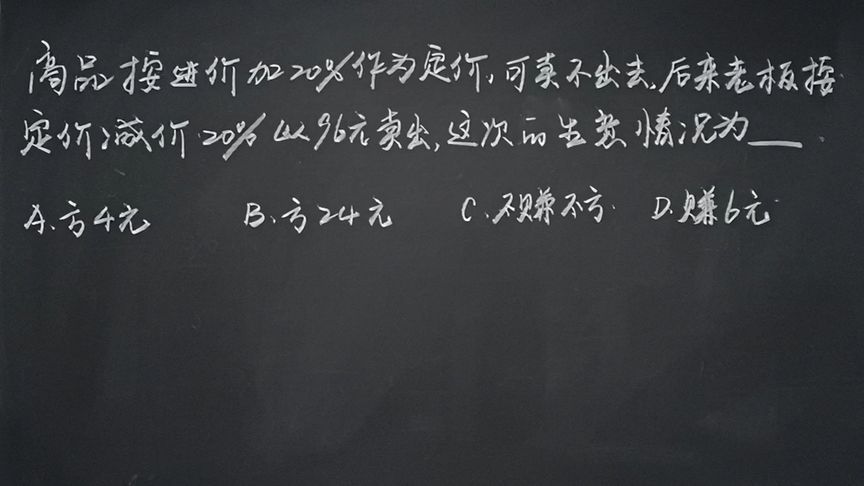 商品按进价加20%作为定价,可卖不出去,后来老板按
定价减价20%以96元卖出,这次的生意情况为___.
A.亏4元 B.亏24元 C.不赚不亏. D.赚6元